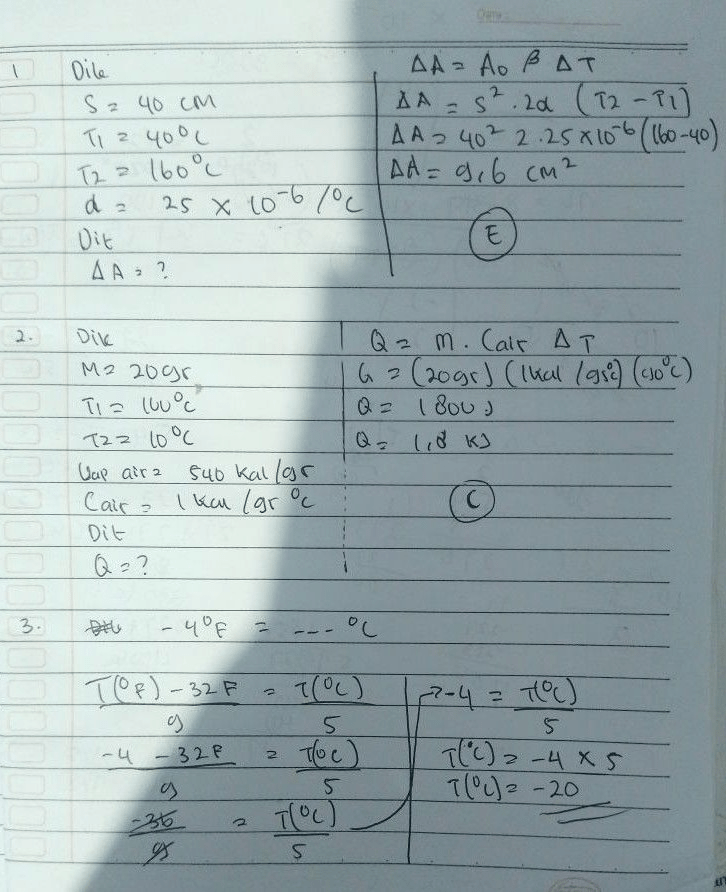 1 Dik
S = 40 cm
T1 = 40°C
T2 = 160°C
α = 25 × 10-6 /°C
Dit
ΔA = ?
ΔA = A0 β ΔT
ΔA = s² . 2α (T2 - T1)
ΔA = 40² 2.25×10-6 (160-40)
ΔA = 9,6 cm²
E
2. Dik
M = 20gr
T1 = 100°C
T2 = 10°C
Uap air = 540 kal/gr
Cair = 1 kal/gr °C
Dit
Q = ?
Q = m . Cair ΔT
Q = (20gr) (1kal/gr°C) (90°C)
Q = 1800 J
Q = 1,8 KJ
C
3. -4°F = --- °C
T(°F) - 32F / 9 = T(°C) / 5
-4 - 32F / 9 = T(°C) / 5
-36 / 9 = T(°C) / 5
-4 = T(°C) / 5
T(°C) = -4 × 5
T(°C) = -20